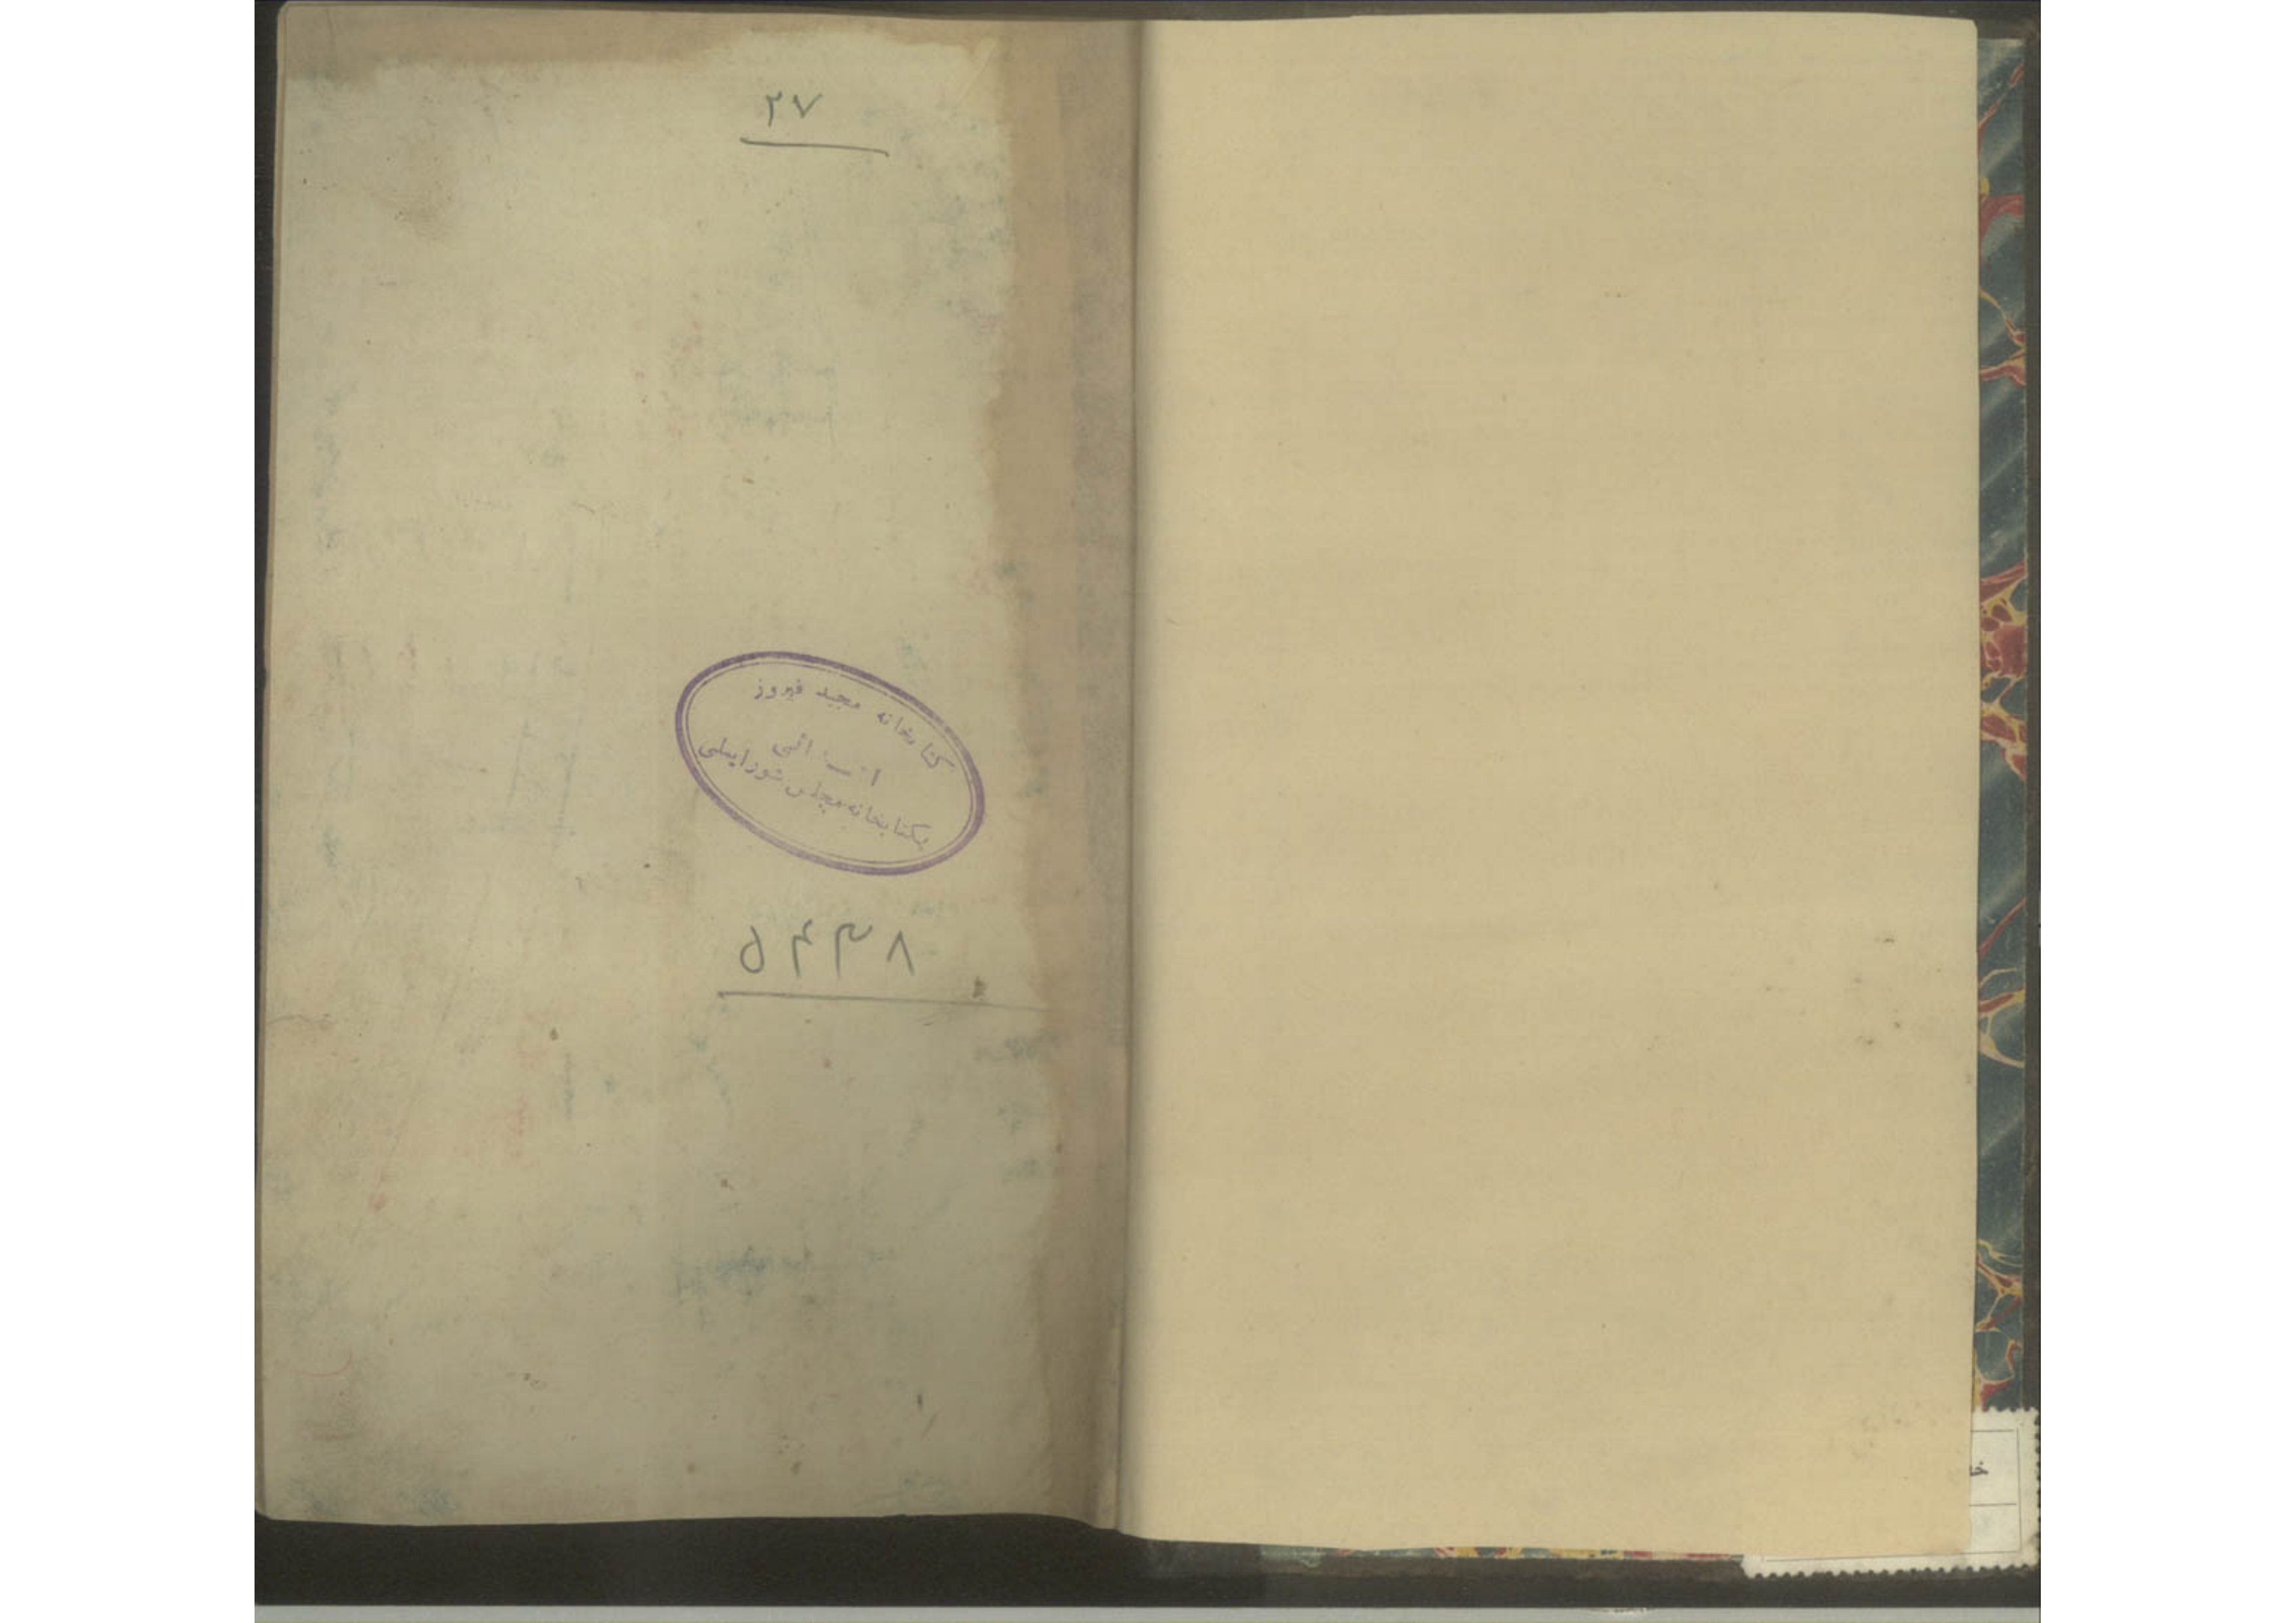 ۲۷
کتابخانه مجید فیروز
ائی
بکتابخانه مجلس شورایملی
۵۴۳۸